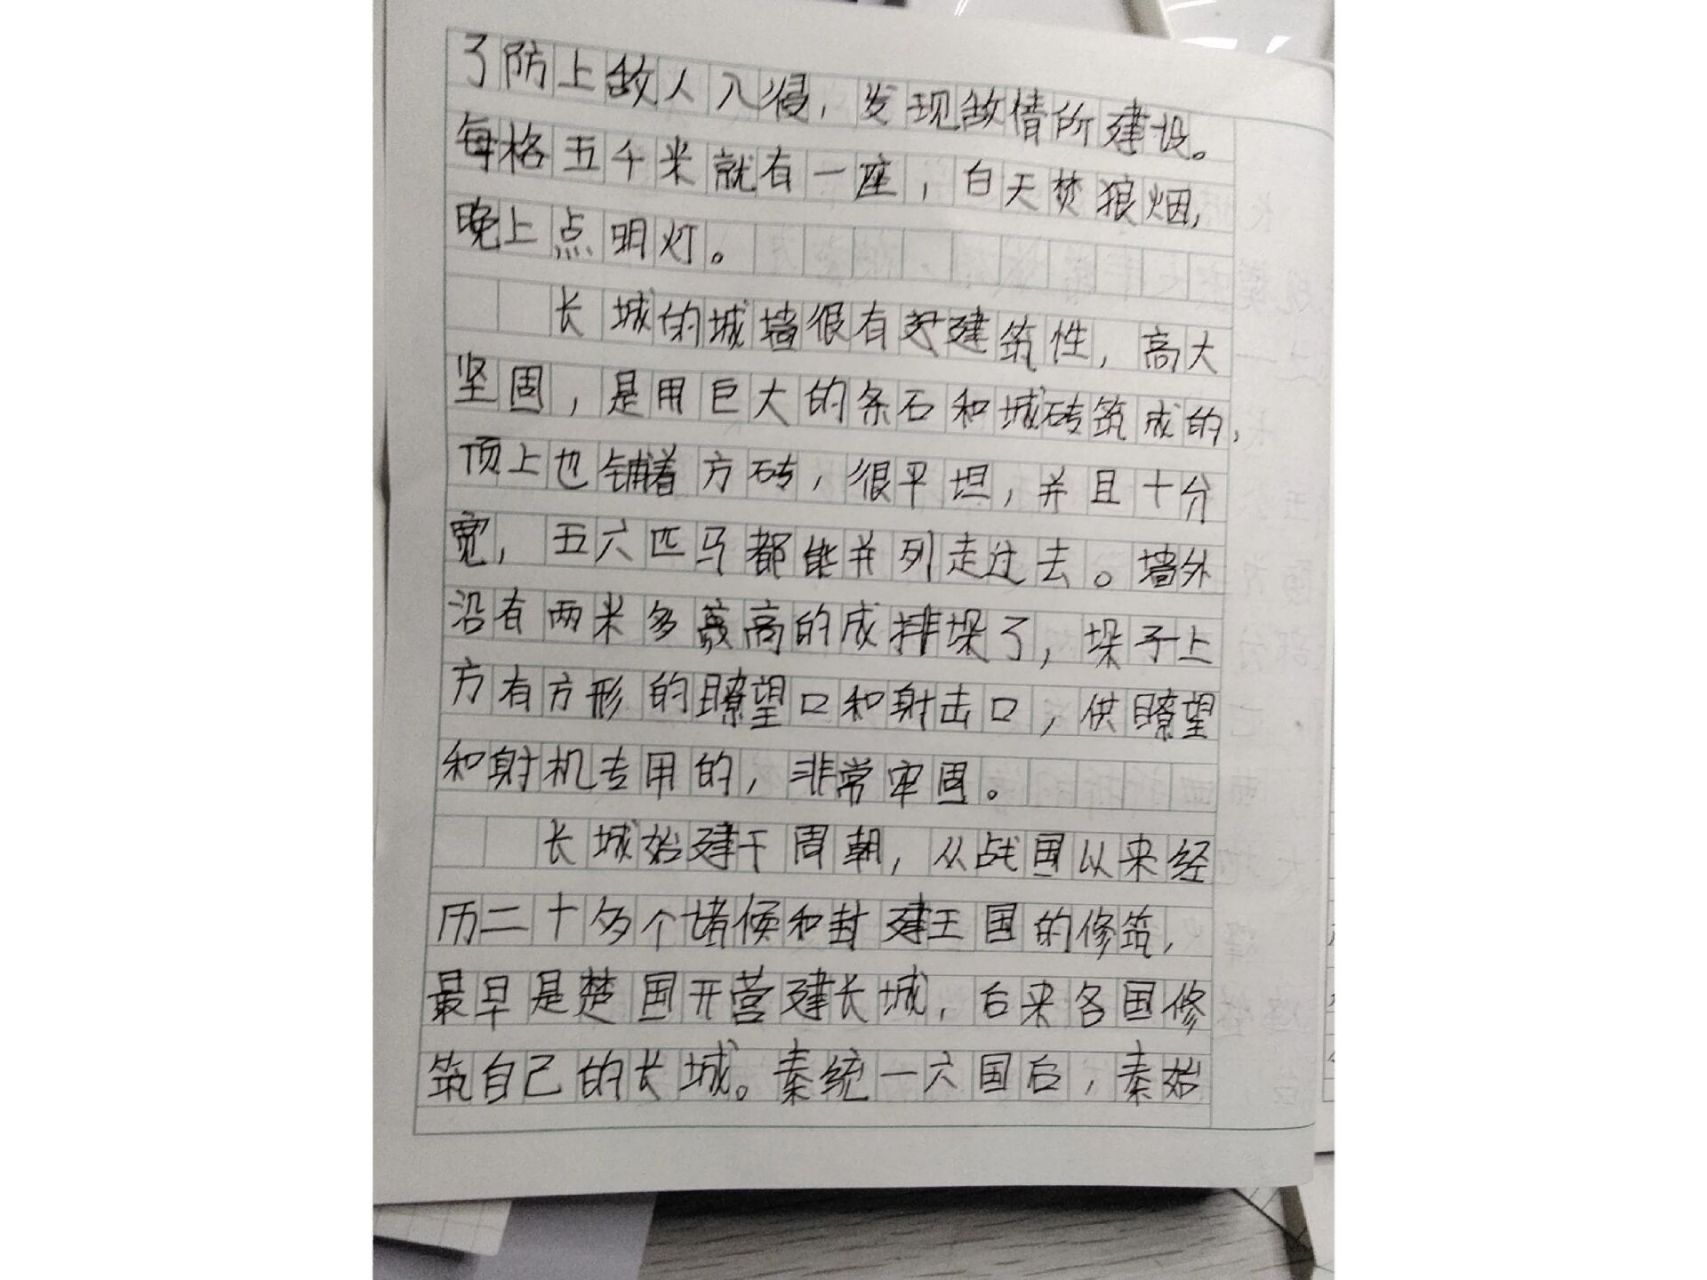 了防上故人入侵，发现故情所建设。
每格五千米就有一座，白天焚狼烟，
晚上点明灯。
长城的城墙很有建筑性，高大
坚固，是用巨大的条石和城砖筑成的，
顶上也铺着方砖，很平坦，并且十分
宽，五六匹马都能并列走过去。墙外
沿有两米多高的成排垛了，垛子上
方有方形的瞭望口和射击口，供瞭望
和射机专用的，非常牢固。
长城始建于周朝，从战国以来经
历二十多个堵候和封建王国的修筑，
最早是楚国开营建长城，后来各国修
筑自己的长城。秦统一六国后，秦始